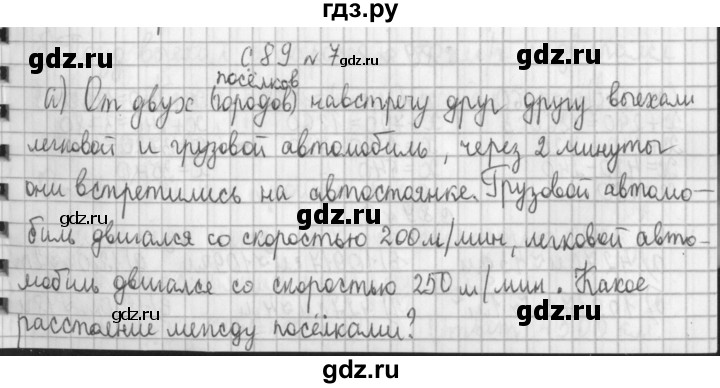 гдз.ру
с 89 № 7
gdz.ru gdz.ru
посёлков
а) От двух (городов) навстречу друг другу выехали
легковой и грузовой автомобиль, через 2 минуты
gdz.ru
они встретились на автостоянке. Грузовой автомо-
gdz.ru gdz.ru
биль двигался со скоростью 200 м/мин, легковой авто-
мобиль двигался со скоростью 250 м/мин. Какое
gdz.ru gdz.ru
расстояние между посёлками?
gdz.ru